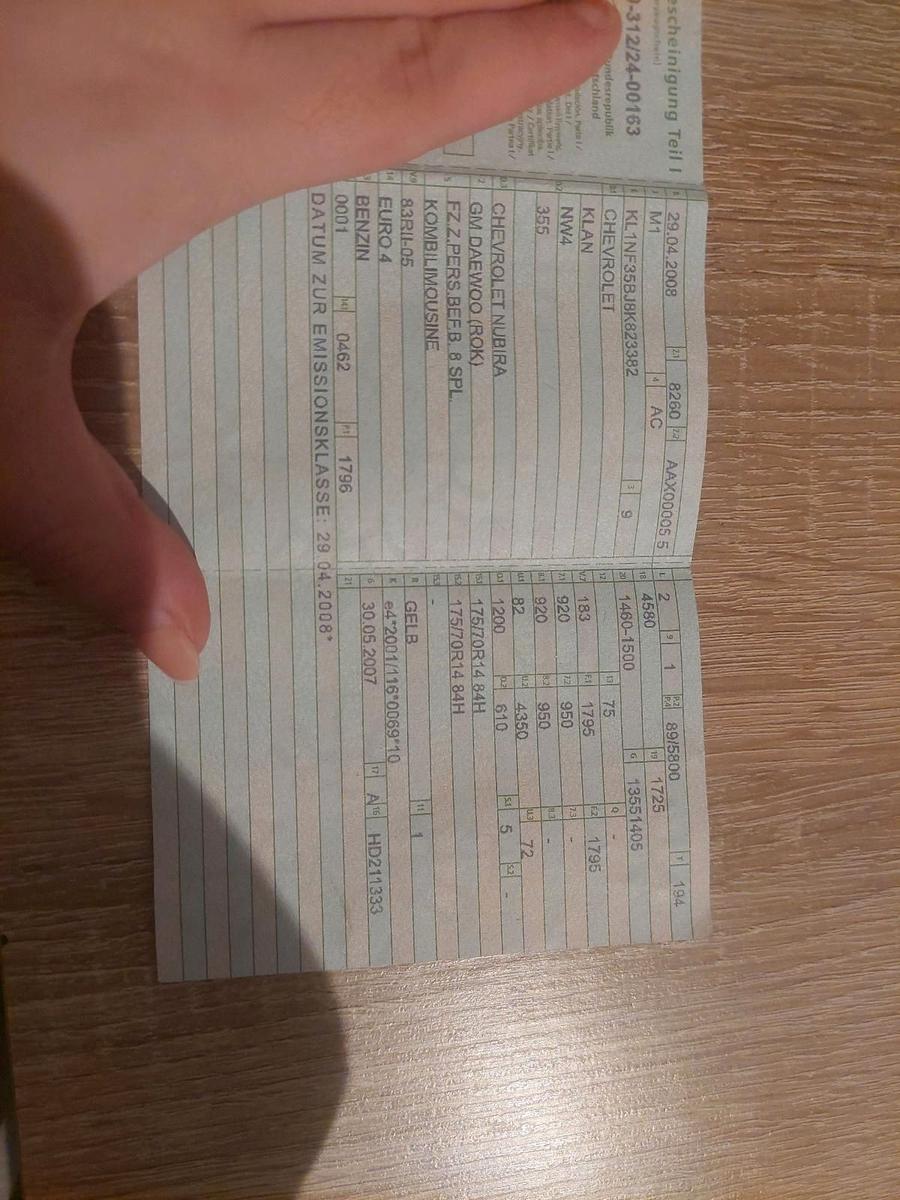 escheinigung Teil I
-312/24-00163
undesrepublik
tschland
B 29.04.2008 2.1 8260 2.2 AAX00005 5
J M1 4 AC
E KL1NF35BJ8K823382 3 9
D.1 CHEVROLET
KLAN
D.2 NW4
355
D.3 CHEVROLET NUBIRA
2 GM DAEWOO (ROK)
5 FZ.Z.PERS.BEF.B. 8 SPL.
KOMBILIMOUSINE
V.9 83RII-05
14 EURO 4
BENZIN
0001 14.1 0462 P.1 1796
DATUM ZUR EMISSIONSKLASSE: 29.04.2008*
L 2 9 1 P.2 P.4 89/5800 T 194
18 4580 19 1725
20 1460-1500 G 13551405
12 13 75 Q -
V.7 183 F.1 1795 F.2 1795
7.1 920 7.2 950 7.3 -
8.1 920 8.2 950 8.3 -
U.1 82 U.2 4350 U.3 72
O.1 1200 O.2 610 S.1 5 S.2 -
15.1 175/70R14 84H
15.2 175/70R14 84H
15.3 -
R GELB 11 1
K e4*2001/116*0069*10
6 30.05.2007 17 A 16 HD211333
21